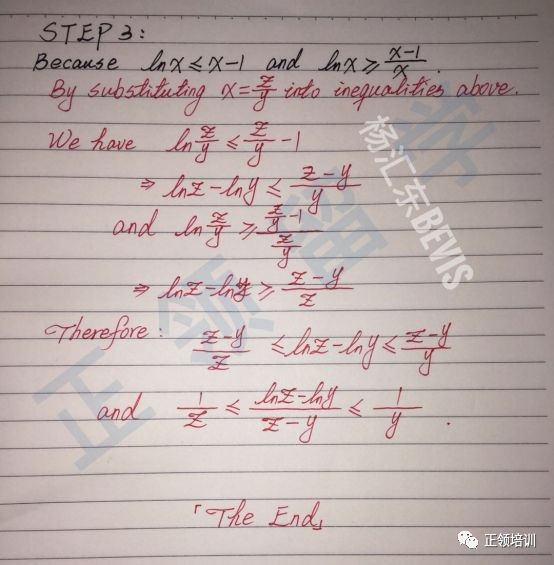 STEP 3:
Because lnx ≤ x-1 and lnx ≥ \frac{x-1}{x}.
By substituting x = \frac{z}{y} into inequalities above.
We have ln\frac{z}{y} ≤ \frac{z}{y} - 1
⇒ lnz - lny ≤ \frac{z-y}{y}
and ln\frac{z}{y} ≥ \frac{\frac{z}{y}-1}{\frac{z}{y}}
⇒ lnz - lny ≥ \frac{z-y}{z}
Therefore: \frac{z-y}{z} ≤ lnz - lny ≤ \frac{z-y}{y}
and \frac{1}{z} ≤ \frac{lnz-lny}{z-y} ≤ \frac{1}{y}.
「The End」
杨汇东BEVIS
正领留学
正领培训